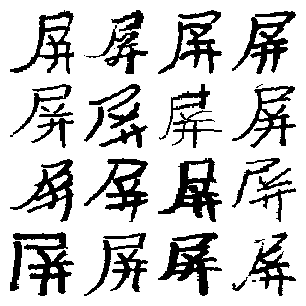 屏屏屏屏
屏屏屏屏
屏屏屏屏
屏屏屏屏